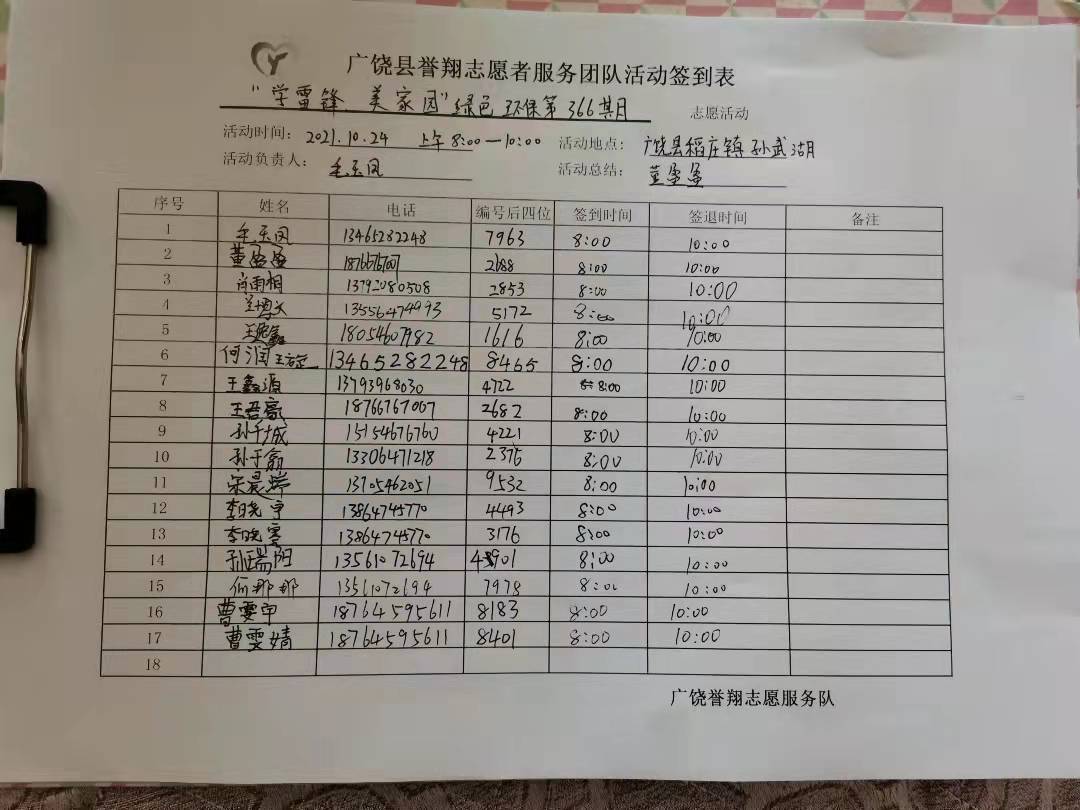 广饶县誉翔志愿者服务团队活动签到表
"学雷锋、美家园"绿色环保第366期 志愿活动
活动时间: 2021.10.24 上午 8:00—10:00 活动地点: 广饶县稻庄镇孙武湖
活动负责人: 毛玉凤 活动总结: 董盈盈
序号 姓名 电话 编号后四位 签到时间 签退时间 备注
1 毛玉凤 13465282248 7963 8:00 10:00
2 董盈盈 2688 8:00 10:00
3 肖雨桐 13792080508 2853 8:00 10:00
4 13556474993 5172 8:00 10:00
5 18054607982 1616 8:00 10:00
6 何润 13465282248 8465 8:00 10:00
7 王鑫源 13793968030 4722 8:00 10:00
8 王吾豪 18766767007 2682 8:00 10:00
9 孙于城 15154676760 4221 8:00 10:00
10 孙于翕 13306471218 2376 8:00 10:00
11 宋晨瑞 13705462051 9532 8:00 10:00
12 李晓宇 13864745770 4493 8:00 10:00
13 李晓寒 13864745770 3176 8:00 10:00
14 孙瑞阳 13561072694 8:00 10:00
15 何那那 13561072694 7978 8:00 10:00
16 曹雯甲 18764595611 8183 8:00 10:00
17 曹雯婧 18764595611 8401 8:00 10:00
18
广饶誉翔志愿服务队